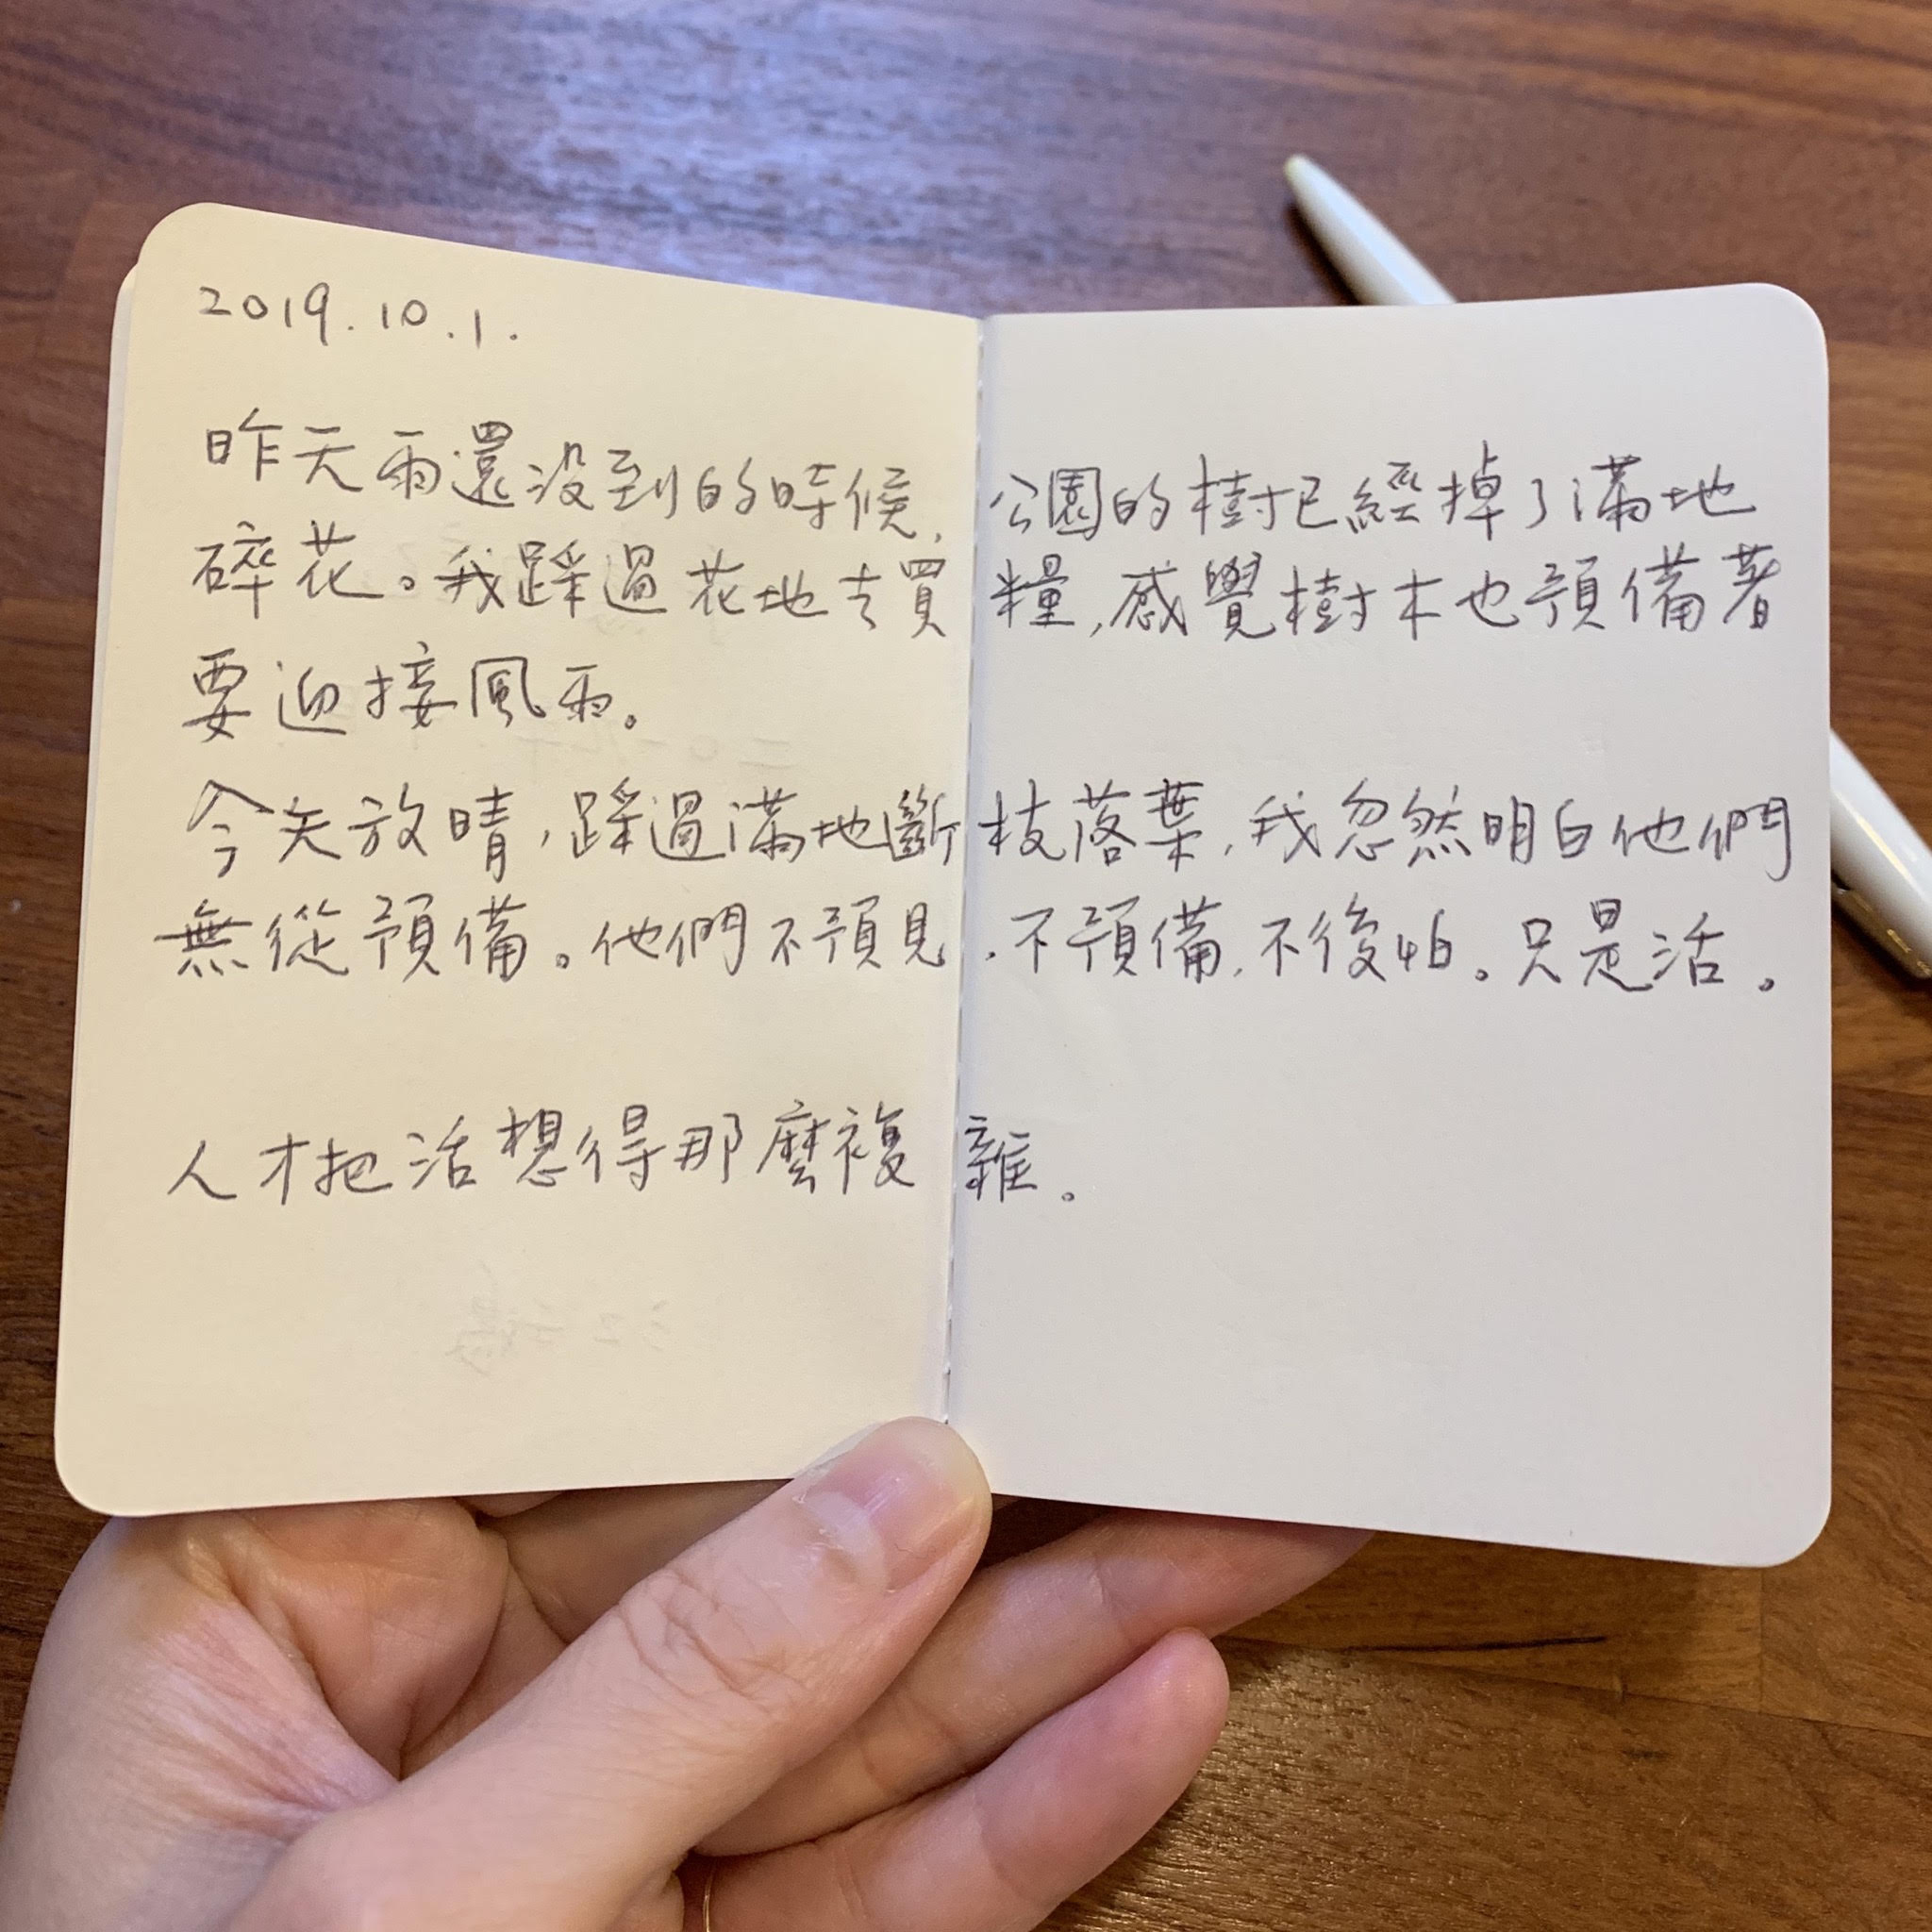 2019.10.1.
昨天雨還没到的時候,公園的樹已經掉了滿地
碎花。我踩過花地去買糧,感覺樹木也預備著
要迎接風雨。
今天放晴,踩過滿地斷枝落葉,我忽然明白他們
無從預備。他們不預見、不預備、不後怕。只是活。
人才把活想得那麼複雜。